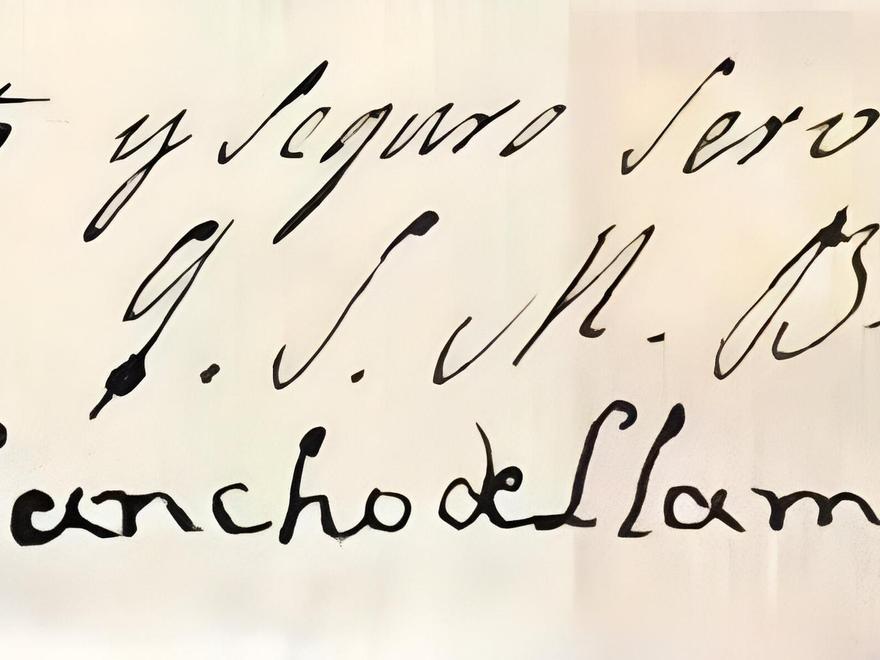 y seguro serv
Q. S. M. B.
ancho de Llam